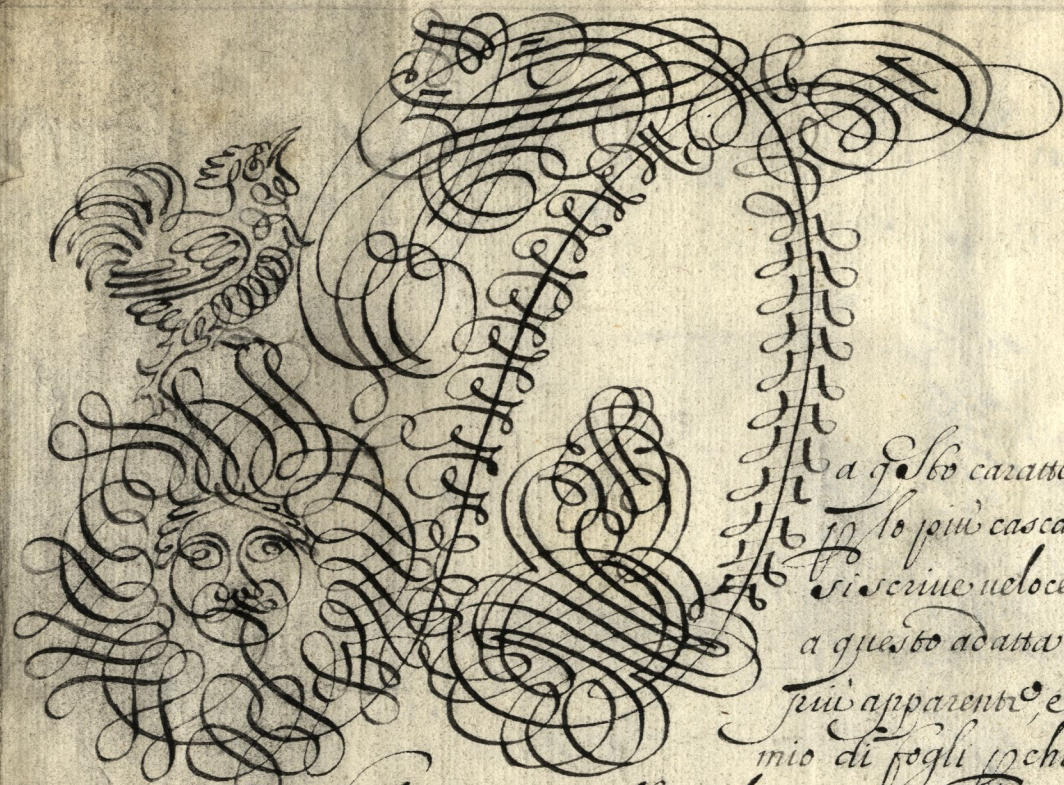 a qesto caratt
p lo più casca
si scriue ueloce
a questo adatta
più apparente, e
mio di fogli p ch